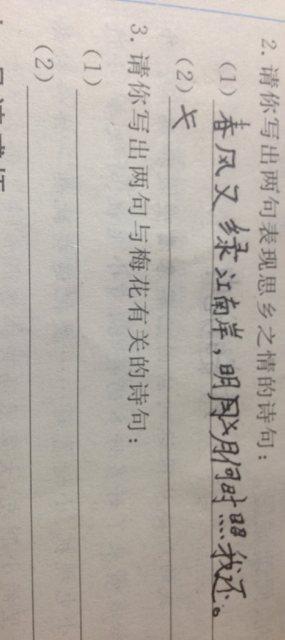 2.请你写出两句表现思乡之情的诗句：
(1)春风又绿江南岸，明月何时照我还。
(2)
3.请你写出两句与梅花有关的诗句：
(1)
(2)